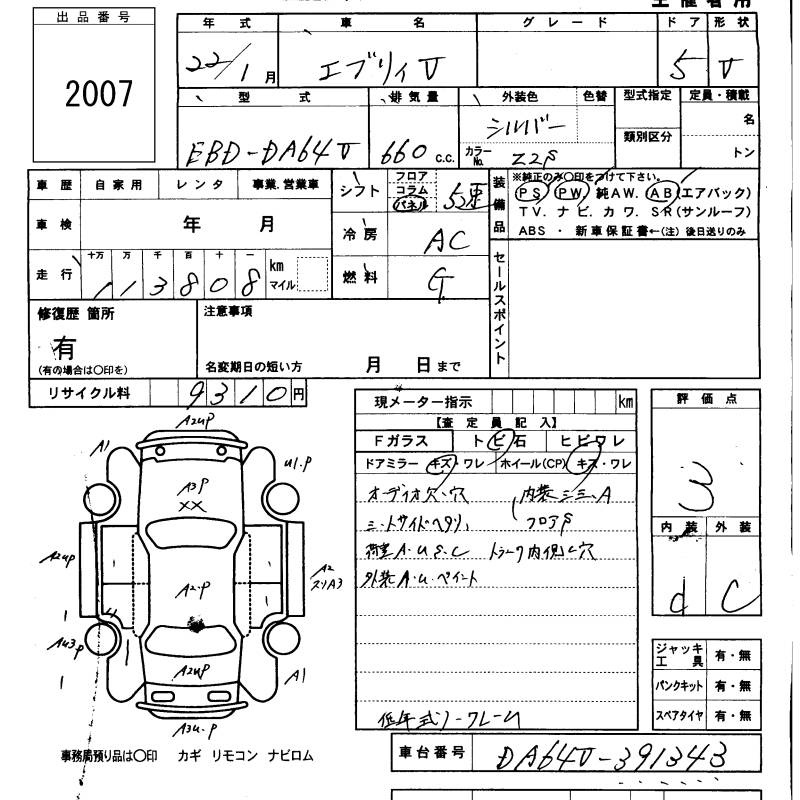 出品番号
2007
年式 車名 グレード ドア 形状
22/1月 エブリィV 5 V
型式 排気量 外装色 色替 型式指定 定員・積載
EBD-DA64V 660 c.c. シルバー 類別区分 名
カラーNo. Z2S トン
車歴 自家用 レンタ 事業.営業車
車検 年 月
走行 十万 万 千 百 十 一
113808 km マイル
シフト フロア コラム パネル 5速
冷房 AC
燃料 G
装備品
※純正のみ〇印をつけて下さい。
PS PW 純AW. AB(エアバック)
TV. ナビ. カワ. SR(サンルーフ)
ABS ・ 新車保証書←(注) 後日送りのみ
セールスポイント
修復歴 箇所
有
(有の場合は〇印を)
注意事項
名変期日の短い方 月 日まで
リサイクル料 9310円
現メーター指示 km
【査定員記入】
Fガラス トビ石 ヒビワレ
ドアミラー キズ・ワレ ホイール(CP) キズ・ワレ
オーディオ欠・穴 内装シミ、A
シートサイドヘタリ、
荷室A.U.S.C
外装A.u.ペイント
低年式ノークレーム
評価点
3
内装 外装
d C
ジャッキ工具 有・無
パンクキット 有・無
スペアタイヤ 有・無
A2uP
A1
u1.P
A3P
XX
A2uP
A2
スリA3
A2.P
Au3P
A2uP
A1
A3u.P
事務局預り品は〇印 カギ リモコン ナビロム
車台番号 DA64V-391343